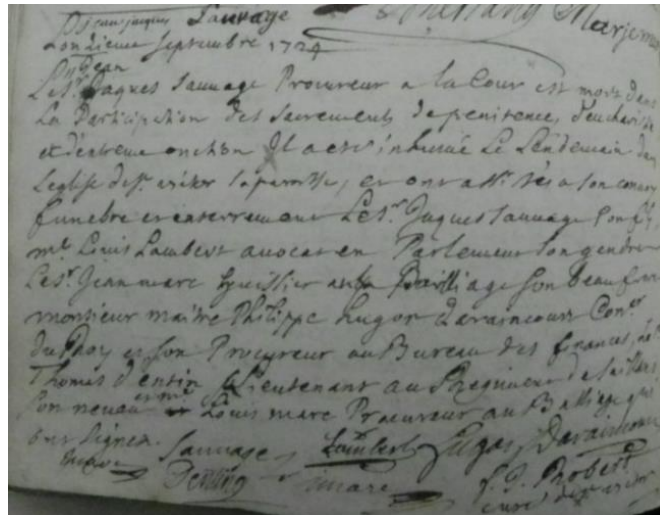 D Jean jaques Sauvage
Lonzieme Septembre 1724
Jean
Le Sr Jaques Sauvage Procureur a la Cour est mort dans
La Participation des Sacrements de penitence, d'eucharistie
et d'extreme onction Il a esté inhumé Le Lendemain dans
L'eglise de St victor sa paroisse, et ont assistés a son convoy
funebre et enterrement Le Sr Jaques Sauvage son fils,
me Louis Lambert avocat en Parlement son gendre
Le Sr Jean marc huissier au Bailliage son beau frere
monsieur maitre Philippe hugot daraincourt Coner
du Roy et son Procureur au Bureau des finances,
Thomas d'entin Lieutenant au Regiment de
son neveu et me Louis marc Procureur au Balliage qui
ont signez.
Sauvage Lambert hugot Daraincourt
marc Denting imarc F. J. Robert
curé de St victor